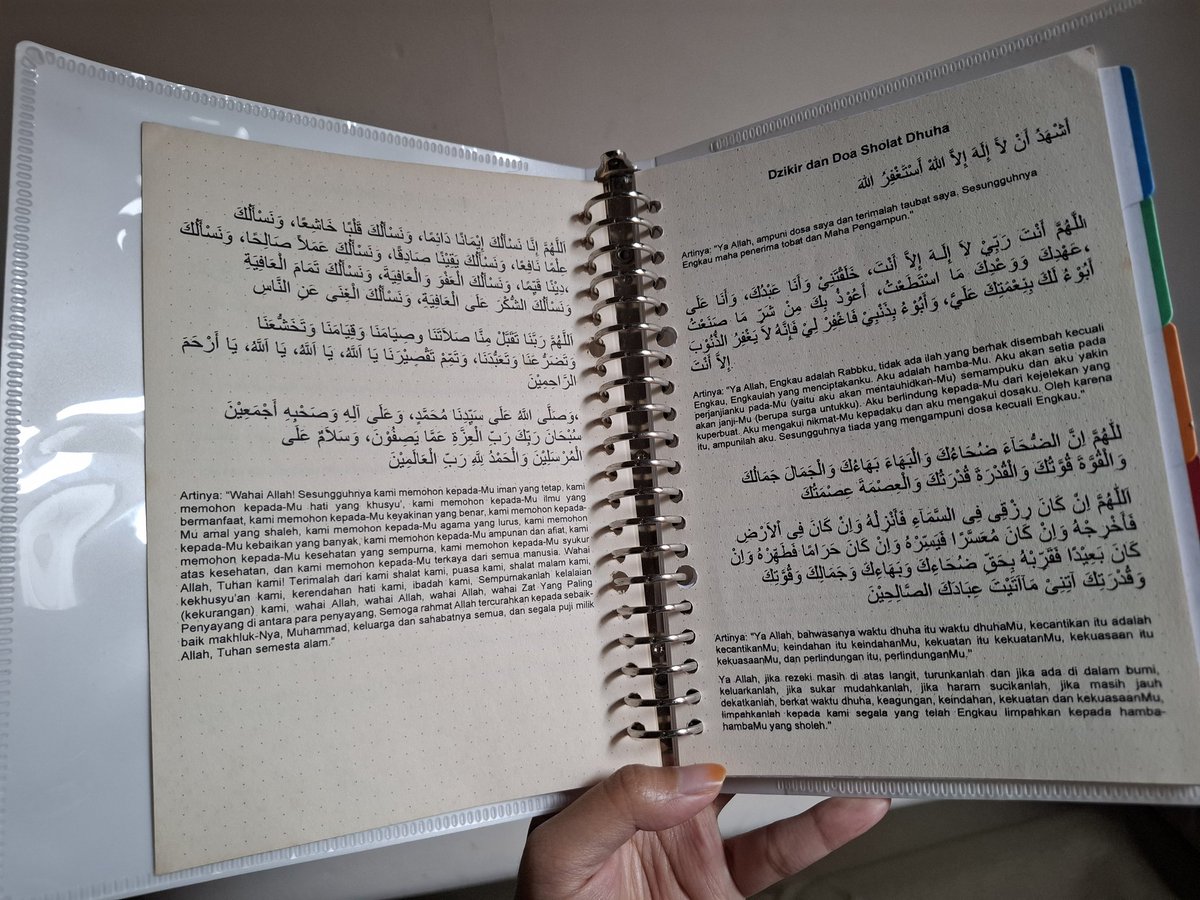 اَللّٰهُمَّ إِنَّا نَسْأَلُكَ إِيْمَانًا دَائِمًا، وَنَسْأَلُكَ قَلْبًا خَاشِعًا، وَنَسْأَلُكَ
عِلْمًا نَافِعًا، وَنَسْأَلُكَ يَقِيْنًا صَادِقًا، وَنَسْأَلُكَ عَمَلاً صَالِحًا، وَنَسْأَلُكَ
دِيْنًا قَيِّمًا، وَنَسْأَلُكَ الْعَفْوَ وَالْعَافِيَةَ، وَنَسْأَلُكَ تَمَامَ الْعَافِيَةِ،
وَنَسْأَلُكَ الشُّكْرَ عَلَى الْعَافِيَةِ، وَنَسْأَلُكَ الْغِنَى عَنِ النَّاسِ
اَللّٰهُمَّ رَبَّنَا تَقَبَّلْ مِنَّا صَلاَتَنَا وصِيَامَنَا وَقِيَامَنَا وَتَخَشُّعَنَا
وَتَضَرُّعَنَا وَتَعَبُّدَنَا، وَتَمِّمْ تَقْصِيْرَنَا يَا اَللهُ، يَا اَللهُ، يَا اَللهُ، يَا أَرْحَمَ
الرَّاحِمِيْنَ
وَصَلَّى اللهُ عَلَى سَيِّدِنَا مُحَمَّدٍ، وَعَلَى آلِهِ وَصَحْبِهِ أَجْمَعِيْنَ،
سُبْحَانَ رَبِّكَ رَبِّ الْعِزَّةِ عَمَّا يَصِفُوْنَ، وَسَلاَمٌ عَلَى
الْمُرْسَلِيْنَ وَالْحَمْدُ لِلّٰهِ رَبِّ الْعَالَمِيْنَ
Artinya: "Wahai Allah! Sesungguhnya kami memohon kepada-Mu iman yang tetap, kami
memohon kepada-Mu hati yang khusyu', kami memohon kepada-Mu ilmu yang
bermanfaat, kami memohon kepada-Mu keyakinan yang benar, kami memohon kepada-
Mu amal yang shaleh, kami memohon kepada-Mu agama yang lurus, kami memohon
kepada-Mu kebaikan yang banyak, kami memohon kepada-Mu ampunan dan afiat, kami
memohon kepada-Mu kesehatan yang sempurna, kami memohon kepada-Mu syukur
atas kesehatan, dan kami memohon kepada-Mu terkaya dari semua manusia. Wahai
Allah, Tuhan kami! Terimalah dari kami shalat kami, puasa kami, shalat malam kami,
kekhusyu'an kami, kerendahan hati kami, ibadah kami, Sempurnakanlah kelalaian
(kekurangan) kami, wahai Allah, wahai Allah, wahai Allah, wahai Zat Yang Paling
Penyayang di antara para penyayang, Semoga rahmat Allah tercurahkan kepada sebaik-
baik makhluk-Nya, Muhammad, keluarga dan sahabatnya semua, dan segala puji milik
Allah, Tuhan semesta alam."
Dzikir dan Doa Sholat Dhuha
أَشْهَدُ أَنْ لاَّ إِلَهَ إِلاَّ اللهُ أَسْتَغْفِرُ اللهَ
Artinya: "Ya Allah, ampuni dosa saya dan terimalah taubat saya, Sesungguhnya
Engkau maha penerima tobat dan Maha Pengampun."
اَللّٰهُمَّ أَنْتَ رَبِّيْ لاَ إِلَهَ إِلاَّ أَنْتَ، خَلَقْتَنِيْ وَأَنَا عَبْدُكَ، وَأَنَا عَلَى
عَهْدِكَ وَوَعْدِكَ مَا اسْتَطَعْتُ، أَعُوْذُ بِكَ مِنْ شَرِّ مَا صَنَعْتُ،
أَبُوْءُ لَكَ بِنِعْمَتِكَ عَلَيَّ، وَأَبُوْءُ بِذَنْبِيْ فَاغْفِرْ لِيْ فَإِنَّهُ لاَ يَغْفِرُ الذُّنُوْبَ
إِلاَّ أَنْتَ
Artinya: "Ya Allah, Engkau adalah Rabbku, tidak ada ilah yang berhak disembah kecuali
Engkau, Engkaulah yang menciptakanku. Aku adalah hamba-Mu. Aku akan setia pada
perjanjianku pada-Mu (yaitu aku akan mentauhidkan-Mu) semampuku dan aku yakin
akan janji-Mu (berupa surga untukku). Aku berlindung kepada-Mu dari kejelekan yang
kuperbuat. Aku mengakui nikmat-Mu kepadaku dan aku mengakui dosaku. Oleh karena
itu, ampunilah aku. Sesungguhnya tiada yang mengampuni dosa kecuali Engkau."
للّٰهُمَّ إِنَّ الضُّحَآءَ ضُحَاءُكَ وَالْبَهَاءَ بَهَاءُكَ وَالْجَمَالَ جَمَالُكَ
وَالْقُوَّةَ قُوَّتُكَ وَالْقُدْرَةَ قُدْرَتُكَ وَالْعِصْمَةَ عِصْمَتُكَ
اَللّٰهُمَّ اِنْ كَانَ رِزْقِى فِى السَّمَآءِ فَأَنْزِلْهُ وَاِنْ كَانَ فِى اْلاَرْضِ
فَأَخْرِجْهُ وَاِنْ كَانَ مُعَسَّرًا فَيَسِّرْهُ وَاِنْ كَانَ حَرَامًا فَطَهِّرْهُ وَاِنْ
كَانَ بَعِيْدًا فَقَرِّبْهُ بِحَقِّ ضُحَاءِكَ وَبَهَاءِكَ وَجَمَالِكَ وَقُوَّتِكَ
وَقُدْرَتِكَ آتِنِىْ مَآاَتَيْتَ عِبَادَكَ الصَّالِحِيْنَ
Artinya: "Ya Allah, bahwasanya waktu dhuha itu waktu dhuhaMu, kecantikan itu adalah
kecantikanMu, keindahan itu keindahanMu, kekuatan itu kekuatanMu, kekuasaan itu
kekuasaanMu, dan perlindungan itu, perlindunganMu."
Ya Allah, jika rezeki masih di atas langit, turunkanlah dan jika ada di dalam bumi,
keluarkanlah, jika sukar mudahkanlah, jika haram sucikanlah, jika masih jauh
dekatkanlah, berkat waktu dhuha, keagungan, keindahan, kekuatan dan kekuasaanMu,
limpahkanlah kepada kami segala yang telah Engkau limpahkan kepada hamba-
hambaMu yang sholeh."